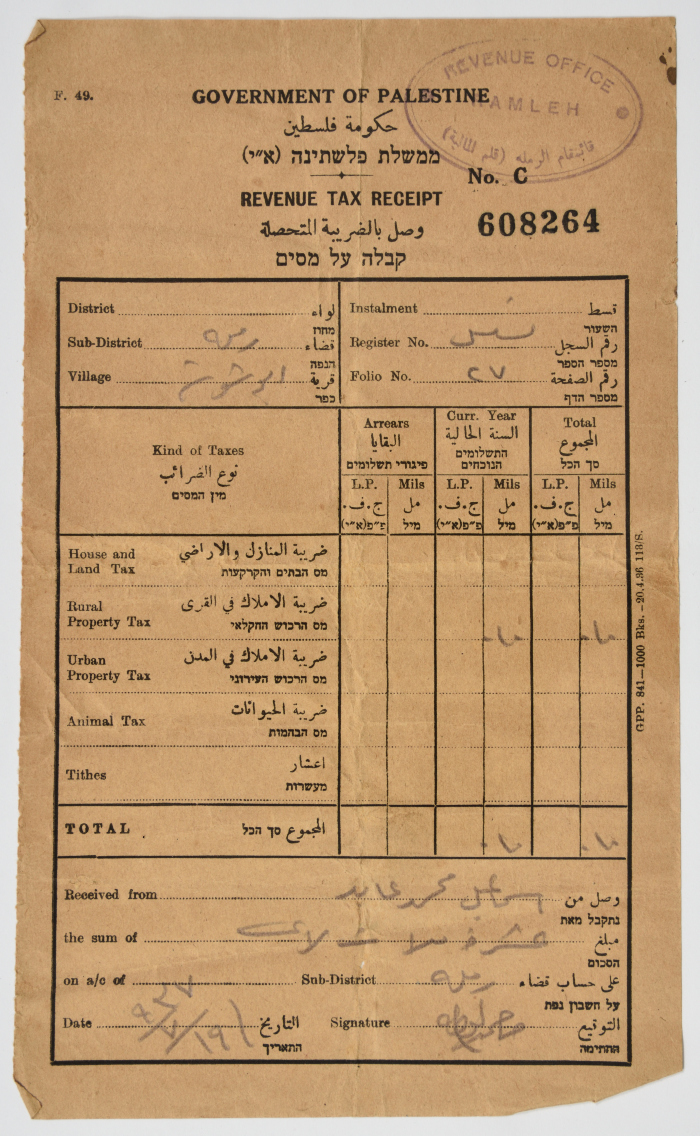 REVENUE OFFICE
RAMLEH
قائمقام الرمله (قلم المالية)
F. 49.
GOVERNMENT OF PALESTINE
حكومة فلسطين
ממשלת פלשתינה (א״י)
No. C 608264
REVENUE TAX RECEIPT
وصل بالضريبة المتحصلة
קבלה על מסים
District لواء
מחוז
Sub-District رمله قضاء
הנפה
Village قرية
כפר
Instalment قسط
השעור
Register No. رقم السجل
מספר הספר
Folio No. ٢٧ رقم الصفحة
מספר הדף
Kind of Taxes
نوع الضرائب
מין המסים
Arrears
البقايا
פיגורי תשלומים
Curr. Year
السنة الحالية
התשלומים
הנוכחים
Total
المجموع
סך הכל
L.P. Mils L.P. Mils L.P. Mils
ج.ف. مل ج.ف. مل ج.ف. مل
פ״פ(א״י) מיל פ״פ(א״י) מיל פ״פ(א״י) מיל
House and ضريبة المنازل والاراضي
Land Tax מס הבתים והקרקעות
Rural ضريبة الاملاك في القرى
Property Tax מס הרכוש החקלאי
Urban ضريبة الاملاك في المدن
Property Tax מס הרכוש העירוני
Animal Tax ضريبة الحيوانات
מס הבהמות
Tithes اعشار
מעשרות
TOTAL المجموع סך הכל
Received from محمد عابد وصل من
נתקבל מאת
the sum of مبلغ
הסכום
on a/c of Sub-District رمله على حساب قضاء
על חשבון נפת
Date التاريخ
התאריך
Signature التوقيع
החתימה
GPP. 841—1000 Bks.—20.4.36 113/S.